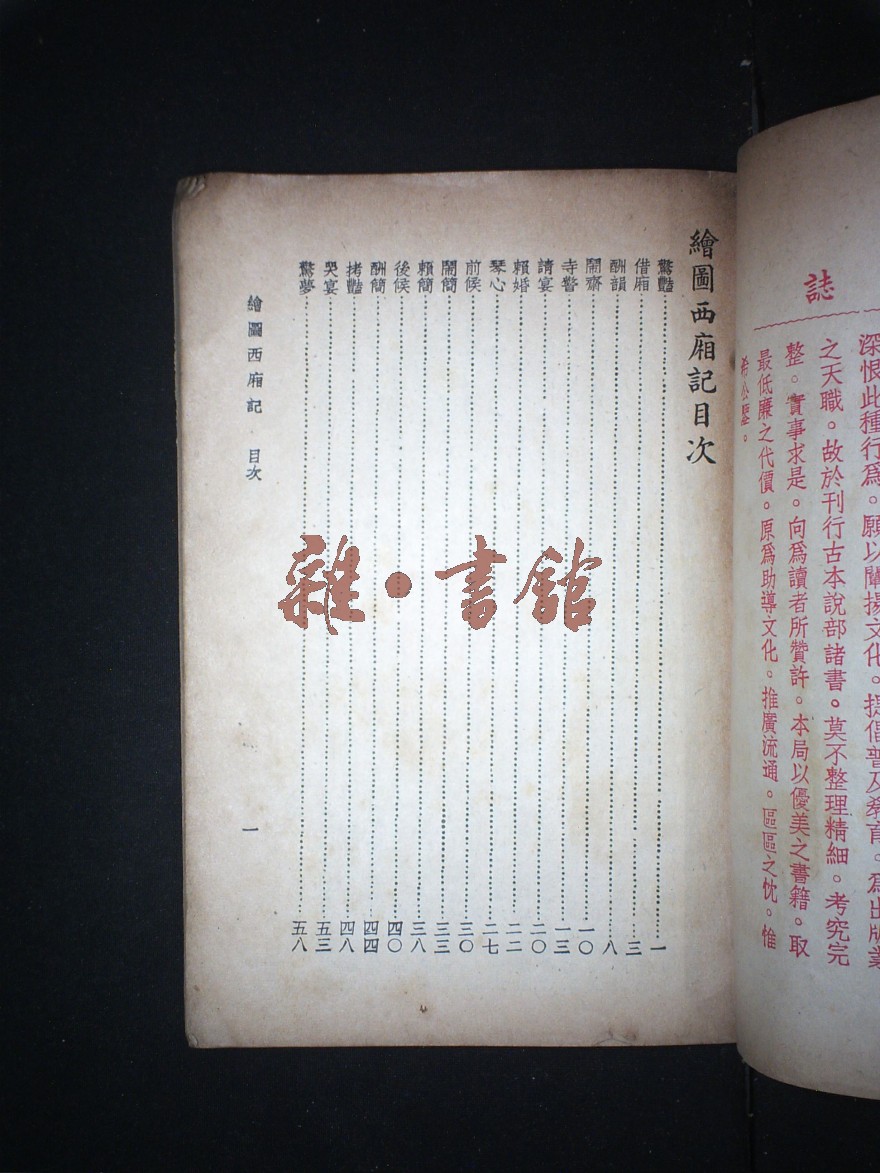 誌
深恨此種行爲。願以闡揚文化。提倡普及教育。爲出版業
之天職。故於刊行古本說部諸書。莫不整理精細。考究完
整。實事求是。向爲讀者所贊許。本局以優美之書籍。取
最低廉之代價。原爲助導文化。推廣流通。區區之忱。惟
希公鑒。
繪圖西廂記目次
驚豔……一
借廂……三
酬韻……八
鬧齋……一〇
寺警……一三
請宴……二〇
賴婚……二二
琴心……二七
前候……三〇
鬧簡……三三
賴簡……三八
後候……四〇
酬簡……四四
拷豔……四八
哭宴……五三
驚夢……五八
繪圖西廂記 目次
一
雜·書館